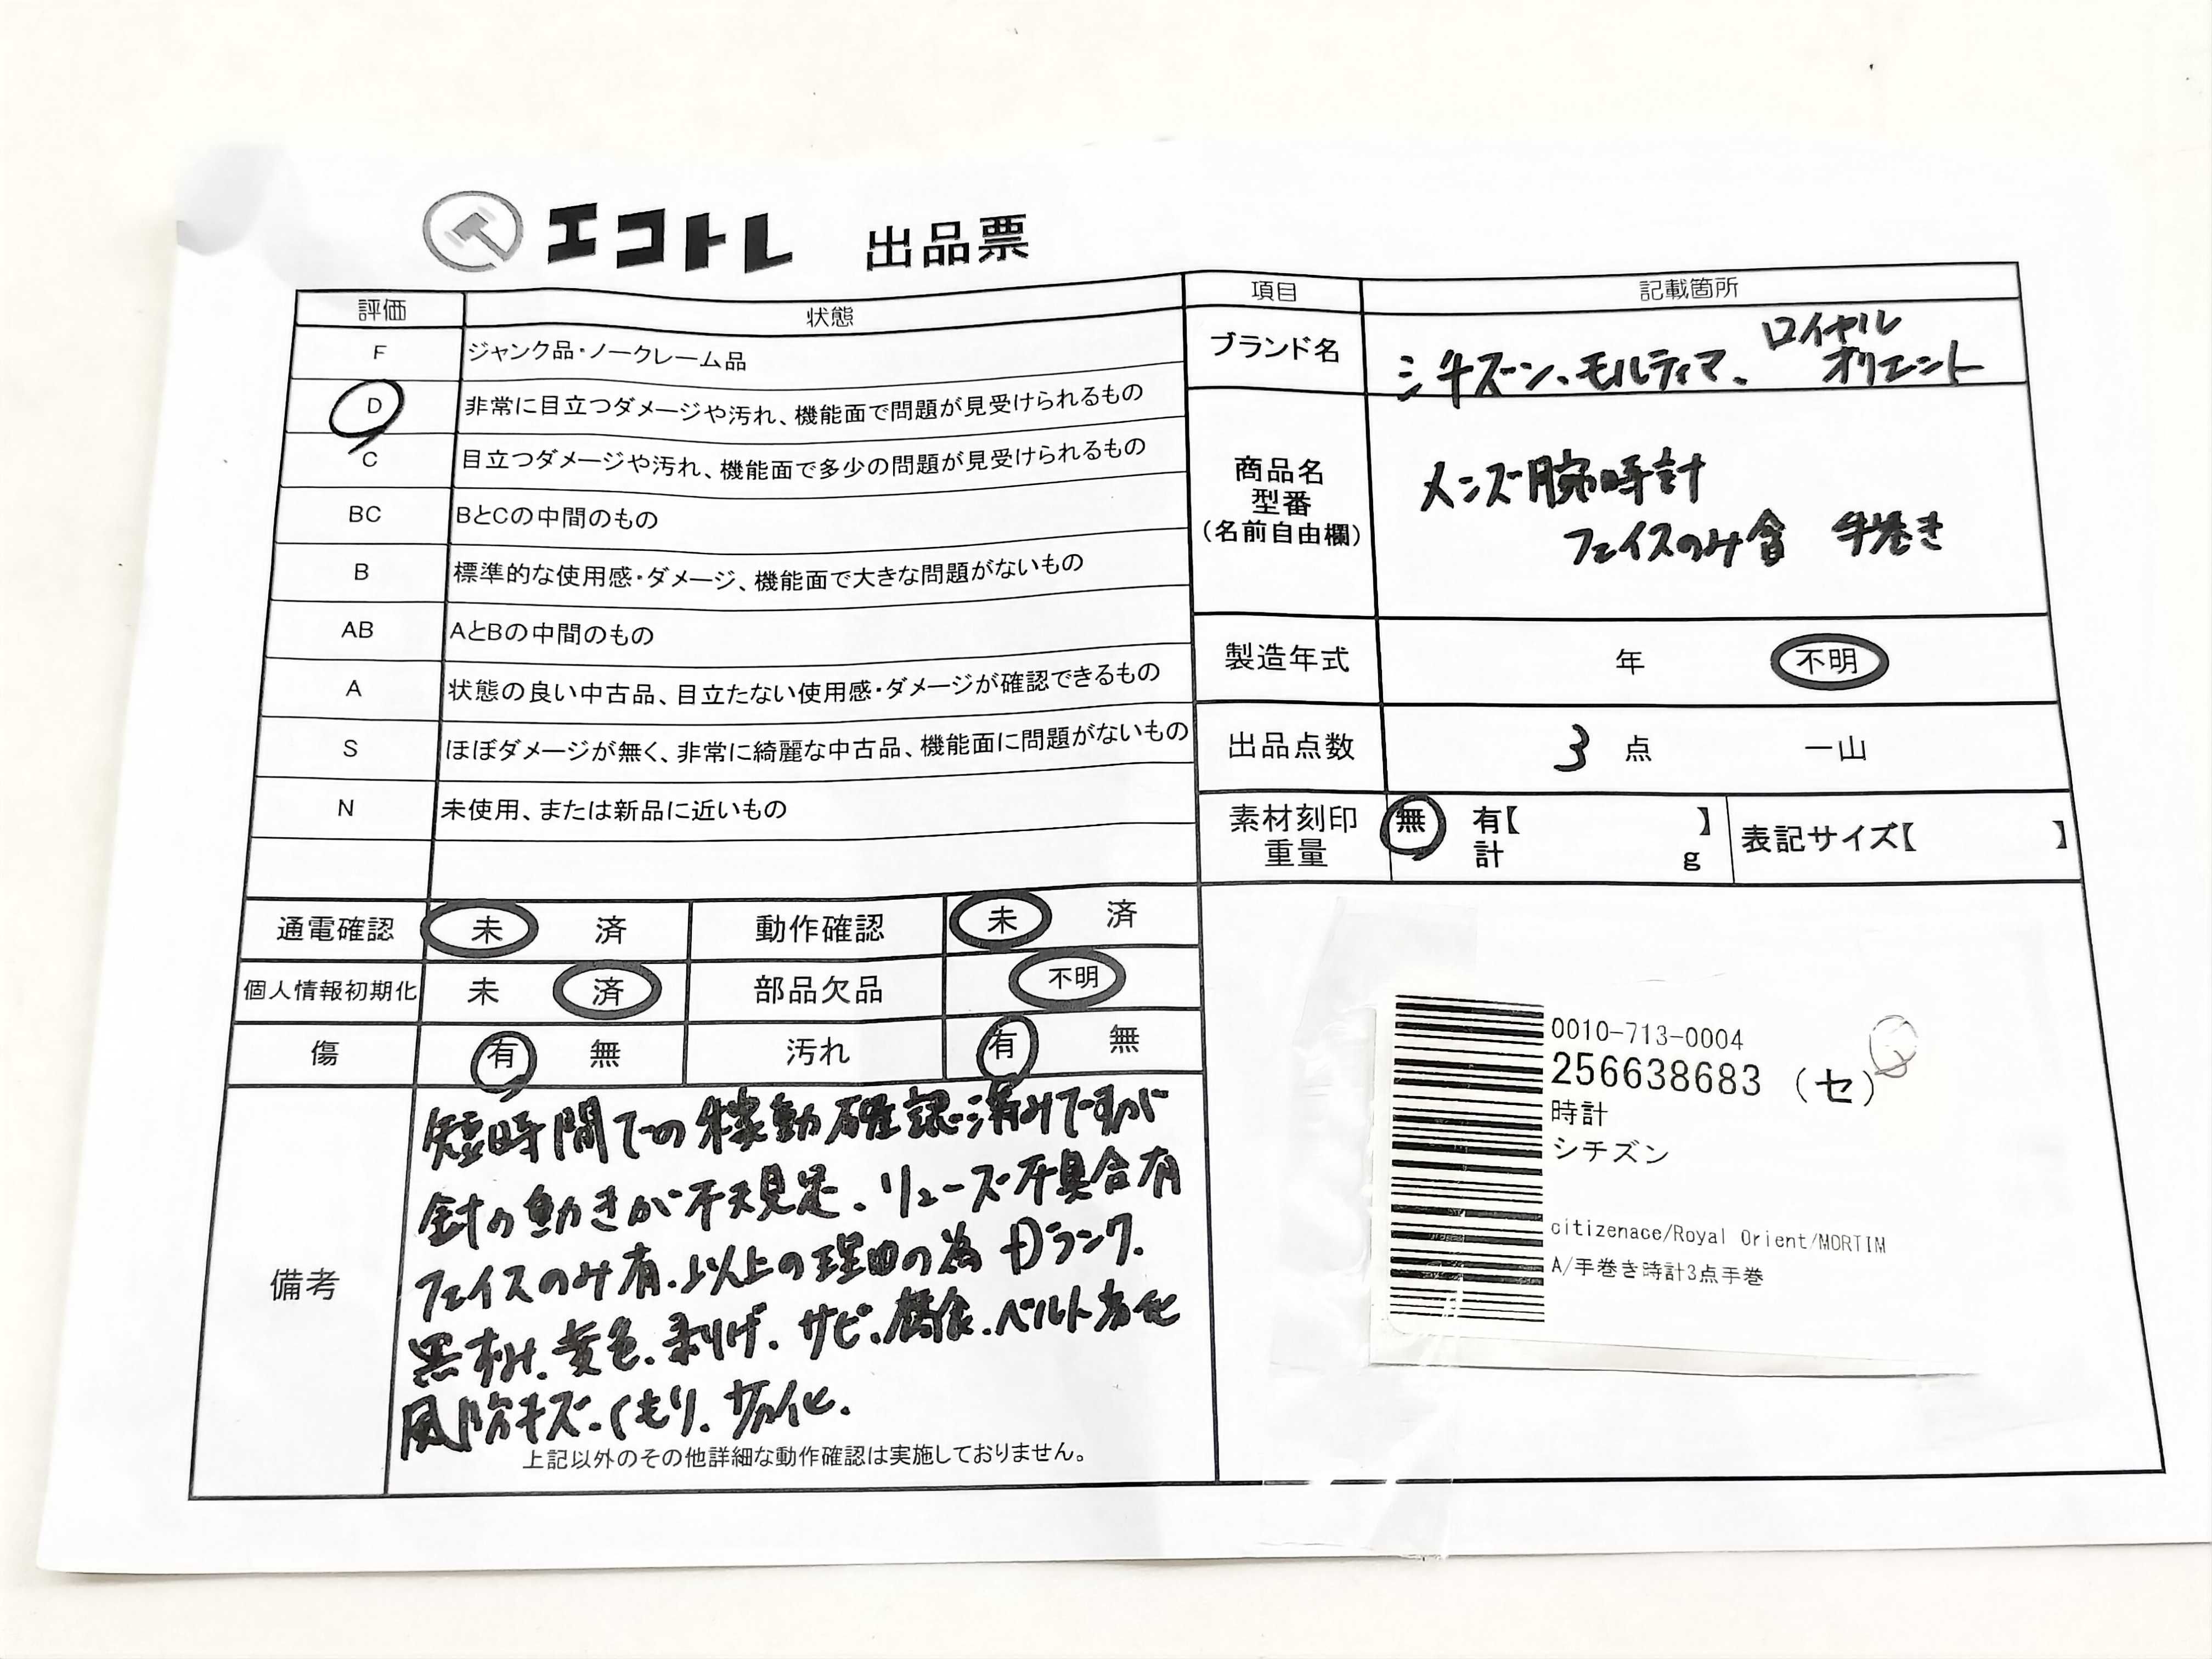 エコトレ 出品票
評価 状態
F ジャンク品・ノークレーム品
D 非常に目立つダメージや汚れ、機能面で問題が見受けられるもの
C 目立つダメージや汚れ、機能面で多少の問題が見受けられるもの
BC BとCの中間のもの
B 標準的な使用感・ダメージ、機能面で大きな問題がないもの
AB AとBの中間のもの
A 状態の良い中古品、目立たない使用感・ダメージが確認できるもの
S ほぼダメージが無く、非常に綺麗な中古品、機能面に問題がないもの
N 未使用、または新品に近いもの
項目 記載箇所
ブランド名 シチズーン、モルティマ、ロイヤル
オリエント
商品名
型番
(名前自由欄)
メンズ腕時計
フェイスのみ含 手巻き
製造年式 年 不明
出品点数 3 点 一山
素材刻印
重量
無 有【 】
計 g
表記サイズ【 】
通電確認 未 済 動作確認 未 済
個人情報初期化 未 済 部品欠品 不明
傷 有 無 汚れ 有 無
備考
短時間での稼動確認済みですが
針の動きが不規足、リューズ不具合有
フェイスのみ有、以上の理由の為Dランク.
黒ずみ、黄色、剥げ、サビ、腐食、ベルト劣化
風防キズ、くもり、劣化、
上記以外のその他詳細な動作確認は実施しておりません。
0010-713-0004
256638683 (セ)
時計
シチズン
citizenace/Royal Orient/MORTIM
A/手巻き時計3点手巻